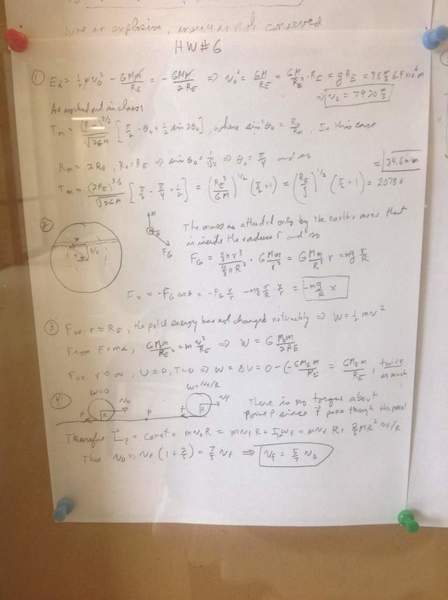 was an explosion, energy is not conserved
HW#6
① E₀ = ½ m v₀² - GMm/R_E = - GMm/2R_E ⇒ v₀² = GM/R_E = GM/R_E² · R_E = g R_E
v₀ = 7920 m/s
As worked out in class
[π/2 - θ₀ + ½ sin 2θ₀], where sin² θ₀ = . In this case
R_m = 2R_E, R₀ = R_E ⇒ sin θ₀ = 1/√2 ⇒ θ₀ = π/4 and so
T_m = (2R_E)^3/2 / √2GM [π/2 - π/4 + ½] = (R_E³/GM)^1/2 (π/2 + 1) = (R_E/g)^1/2 (π/2 + 1) =
34.6 min
② The mass is attracted only by the earth's mass that
is inside the radius r and so
F_G = · GMm/r² = G Mm/R³ r = mg r/R
F_x = -F_G cos θ = -F_G x/r = -mg r/R · x/r = -mg/R x
③ For r = R_E, the potl energy has not changed noticeably ⇒ W = ½ mv²
From F=ma, GM_E m/R_E² = m v²/R_E ⇒ W = G M_E m/2R_E
For r → ∞, U = 0, T = 0 ⇒ W = ΔU = 0 - (-GM_E m/R_E) = GM_E m/R_E, twice
as much
④ ω=0 v₀ ω = v_f/R v_f
P R P R
There is no torque about
point P since f pass though the point
Therefore L_P = const = m v₀ R = m v_f R + I ω_f = m v_f R + ⅖ m R² v_f/R
Thus v₀ = v_f (1 + ⅖) = 7/5 v_f ⇒ v_f = 5/7 v₀